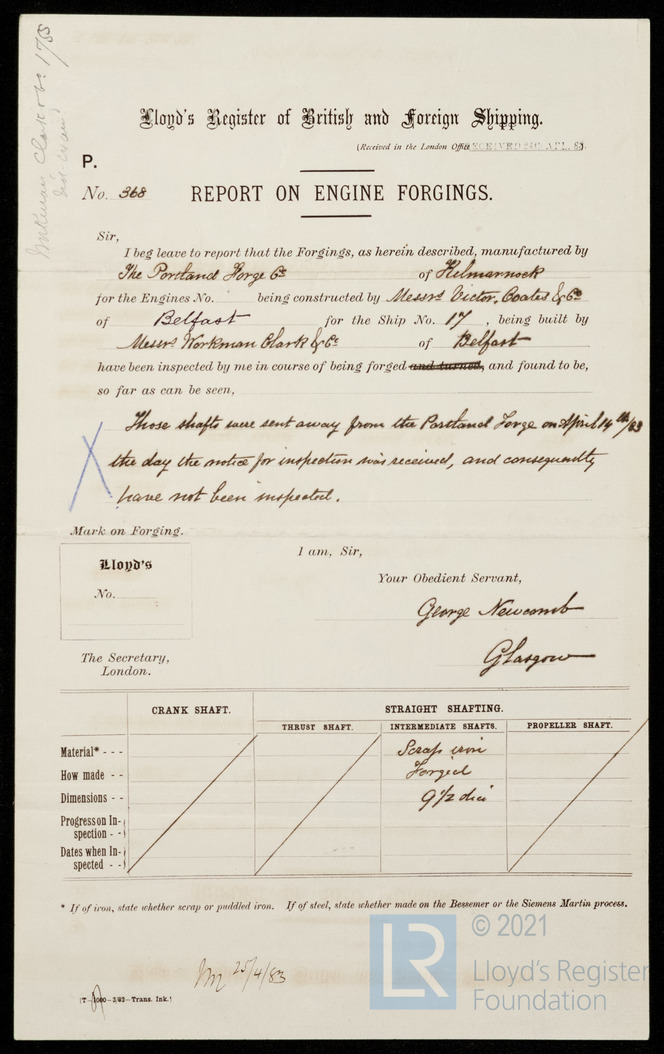 Workman Clark & Co. 17
Lloyd's Register of British and Foreign Shipping.
(Received in the London Office RECEIVED APL. 83).
P.
No. 368 REPORT ON ENGINE FORGINGS.
Sir,
I beg leave to report that the Forgings, as herein described, manufactured by
The Portland Forge Co of Kilmarnock
for the Engines No. being constructed by Messrs Victor, Coates & Co
of Belfast for the Ship No. 17, being built by
Messrs Workman Clark & Co of Belfast
have been inspected by me in course of being forged and turned, and found to be,
so far as can be seen,
Those shafts were sent away from the Portland Forge on April 14th/83
the day the notice for inspection was received, and consequently
have not been inspected.
Mark on Forging.
Lloyd's
No.
I am, Sir,
Your Obedient Servant,
George Newcomb
Glasgow
The Secretary,
London.
CRANK SHAFT. STRAIGHT SHAFTING.
THRUST SHAFT. INTERMEDIATE SHAFTS. PROPELLER SHAFT.
Material* - - - Scrap iron
How made - - Forged
Dimensions - - 9 1/2 dia
Progress on In-
spection - -
Dates when In-
spected - -
* If of iron, state whether scrap or puddled iron. If of steel, state whether made on the Bessemer or the Siemens Martin process.
25/4/83
(T—1000—3/82—Trans. Ink.)
LR
© 2021
Lloyd's Register
Foundation